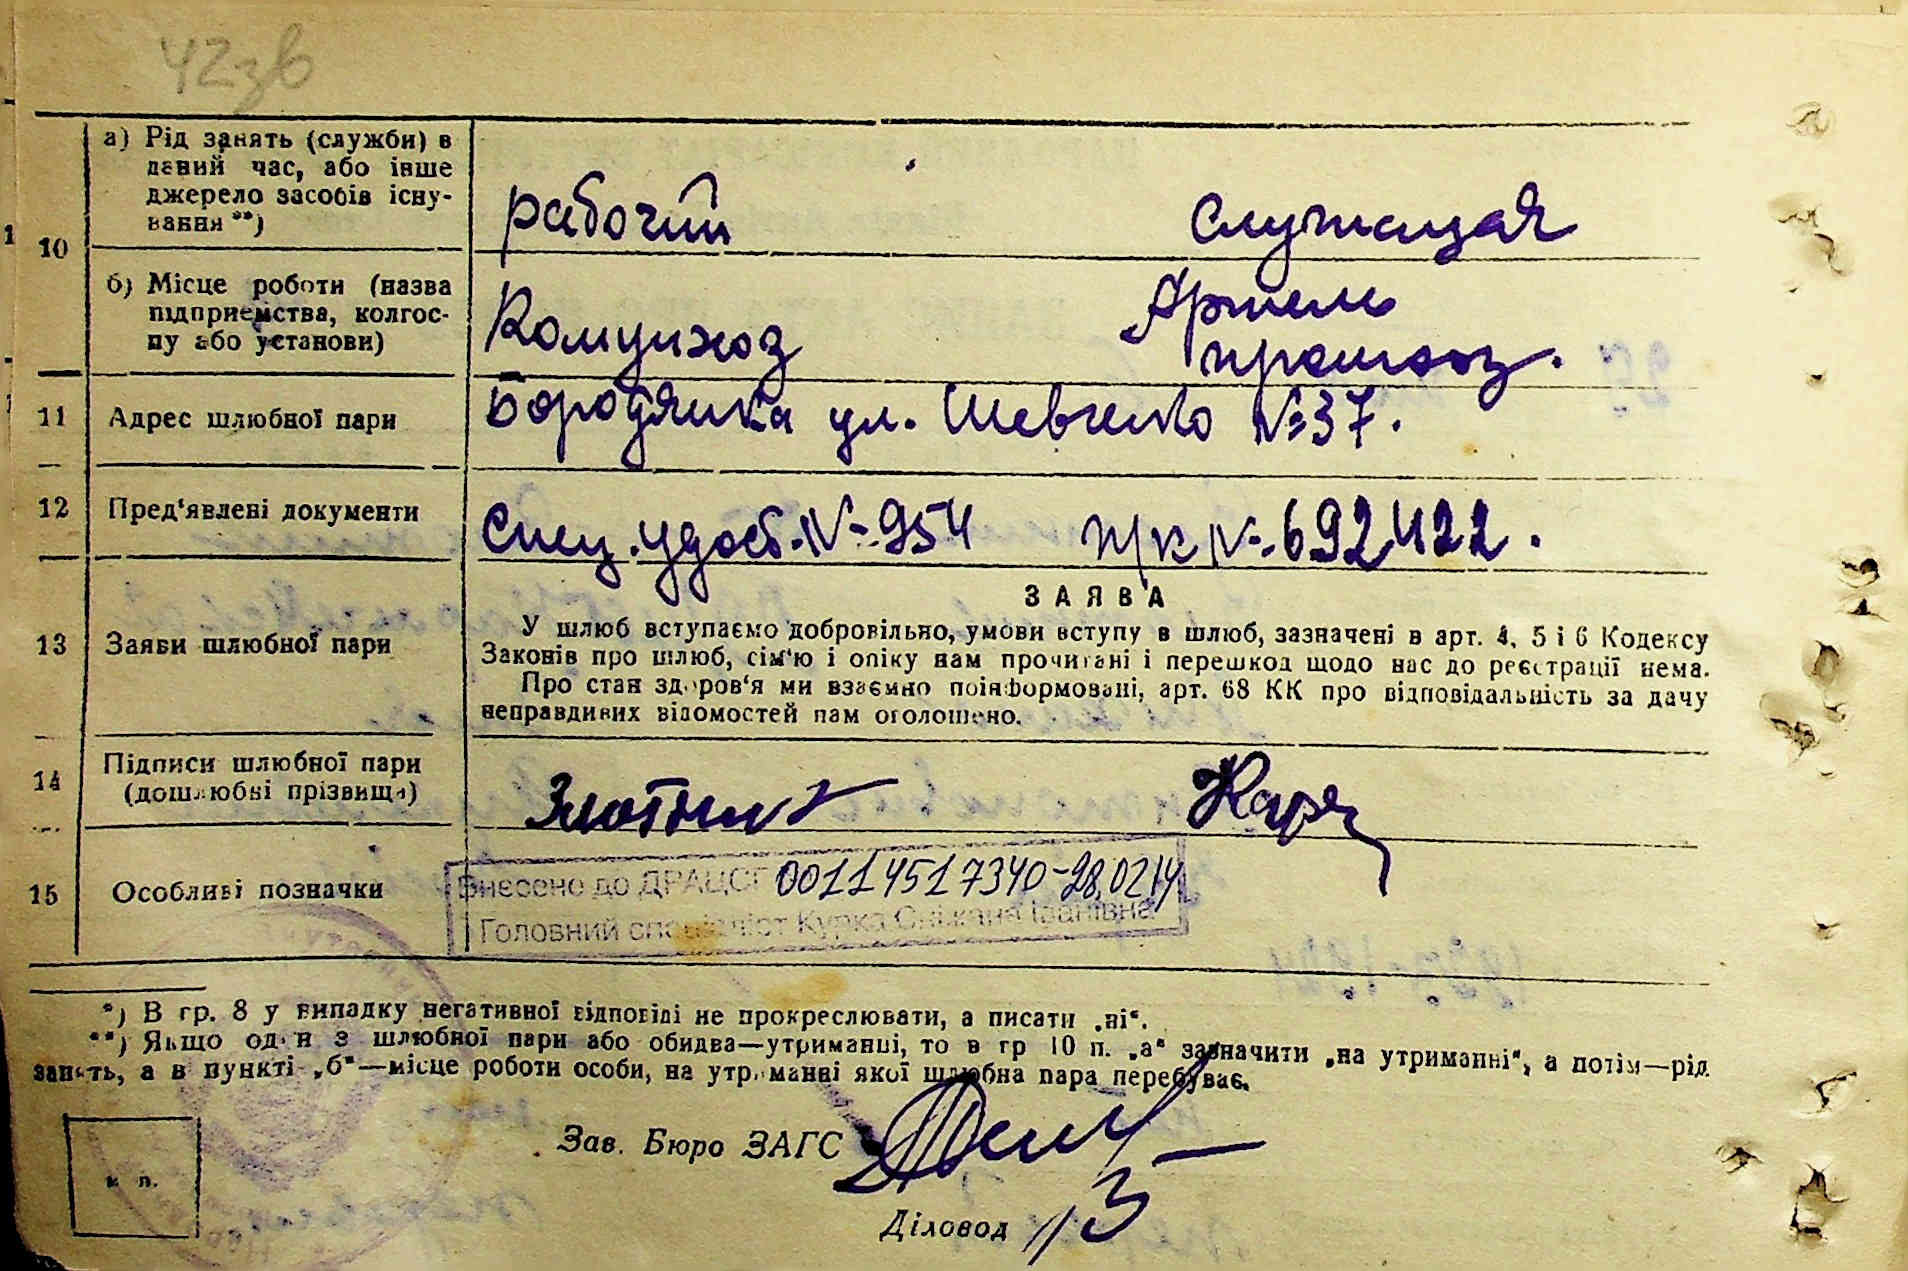 42зв
а) Рід занять (служби) в
даний час, або інше
джерело засобів існу-
вання **)
рабочий служащая
10
б) Місце роботи (назва
підприємства, колгос-
пу або установи)
Комунхоз Артель
промсоюз.
11 Адрес шлюбної пари Бородянка ул. Шевченко №37.
12 Пред'явлені документи Спец. удост. №954 п/к № 692422.
ЗАЯВА
13 Заяви шлюбної пари
У шлюб вступаємо добровільно, умови вступу в шлюб, зазначені в арт. 4, 5 і 6 Кодексу
Законів про шлюб, сім'ю і опіку нам прочитані і перешкод щодо нас до реєстрації нема.
Про стан здоров'я ми взаємно поінформовані, арт. 68 КК про відповідальність за дачу
неправдивих відомостей нам оголошено.
14 Підписи шлюбної пари
(дошлюбні прізвища)
Злотник
15 Особливі позначки
Внесено до ДРАЦСГ 00114517340-28.02.14
Головний спеціаліст Курка Сніжана Іванівна
*) В гр. 8 у випадку негативної відповіді не прокреслювати, а писати „ні“.
**) Якщо один з шлюбної пари або обидва—утриманці, то в гр 10 п. „а“ зазначити „на утриманні“, а потім—рід
занять, а в пункті „б“—місце роботи особи, на утриманні якої шлюбна пара перебуває.
Зав. Бюро ЗАГС
м. п.
Діловод